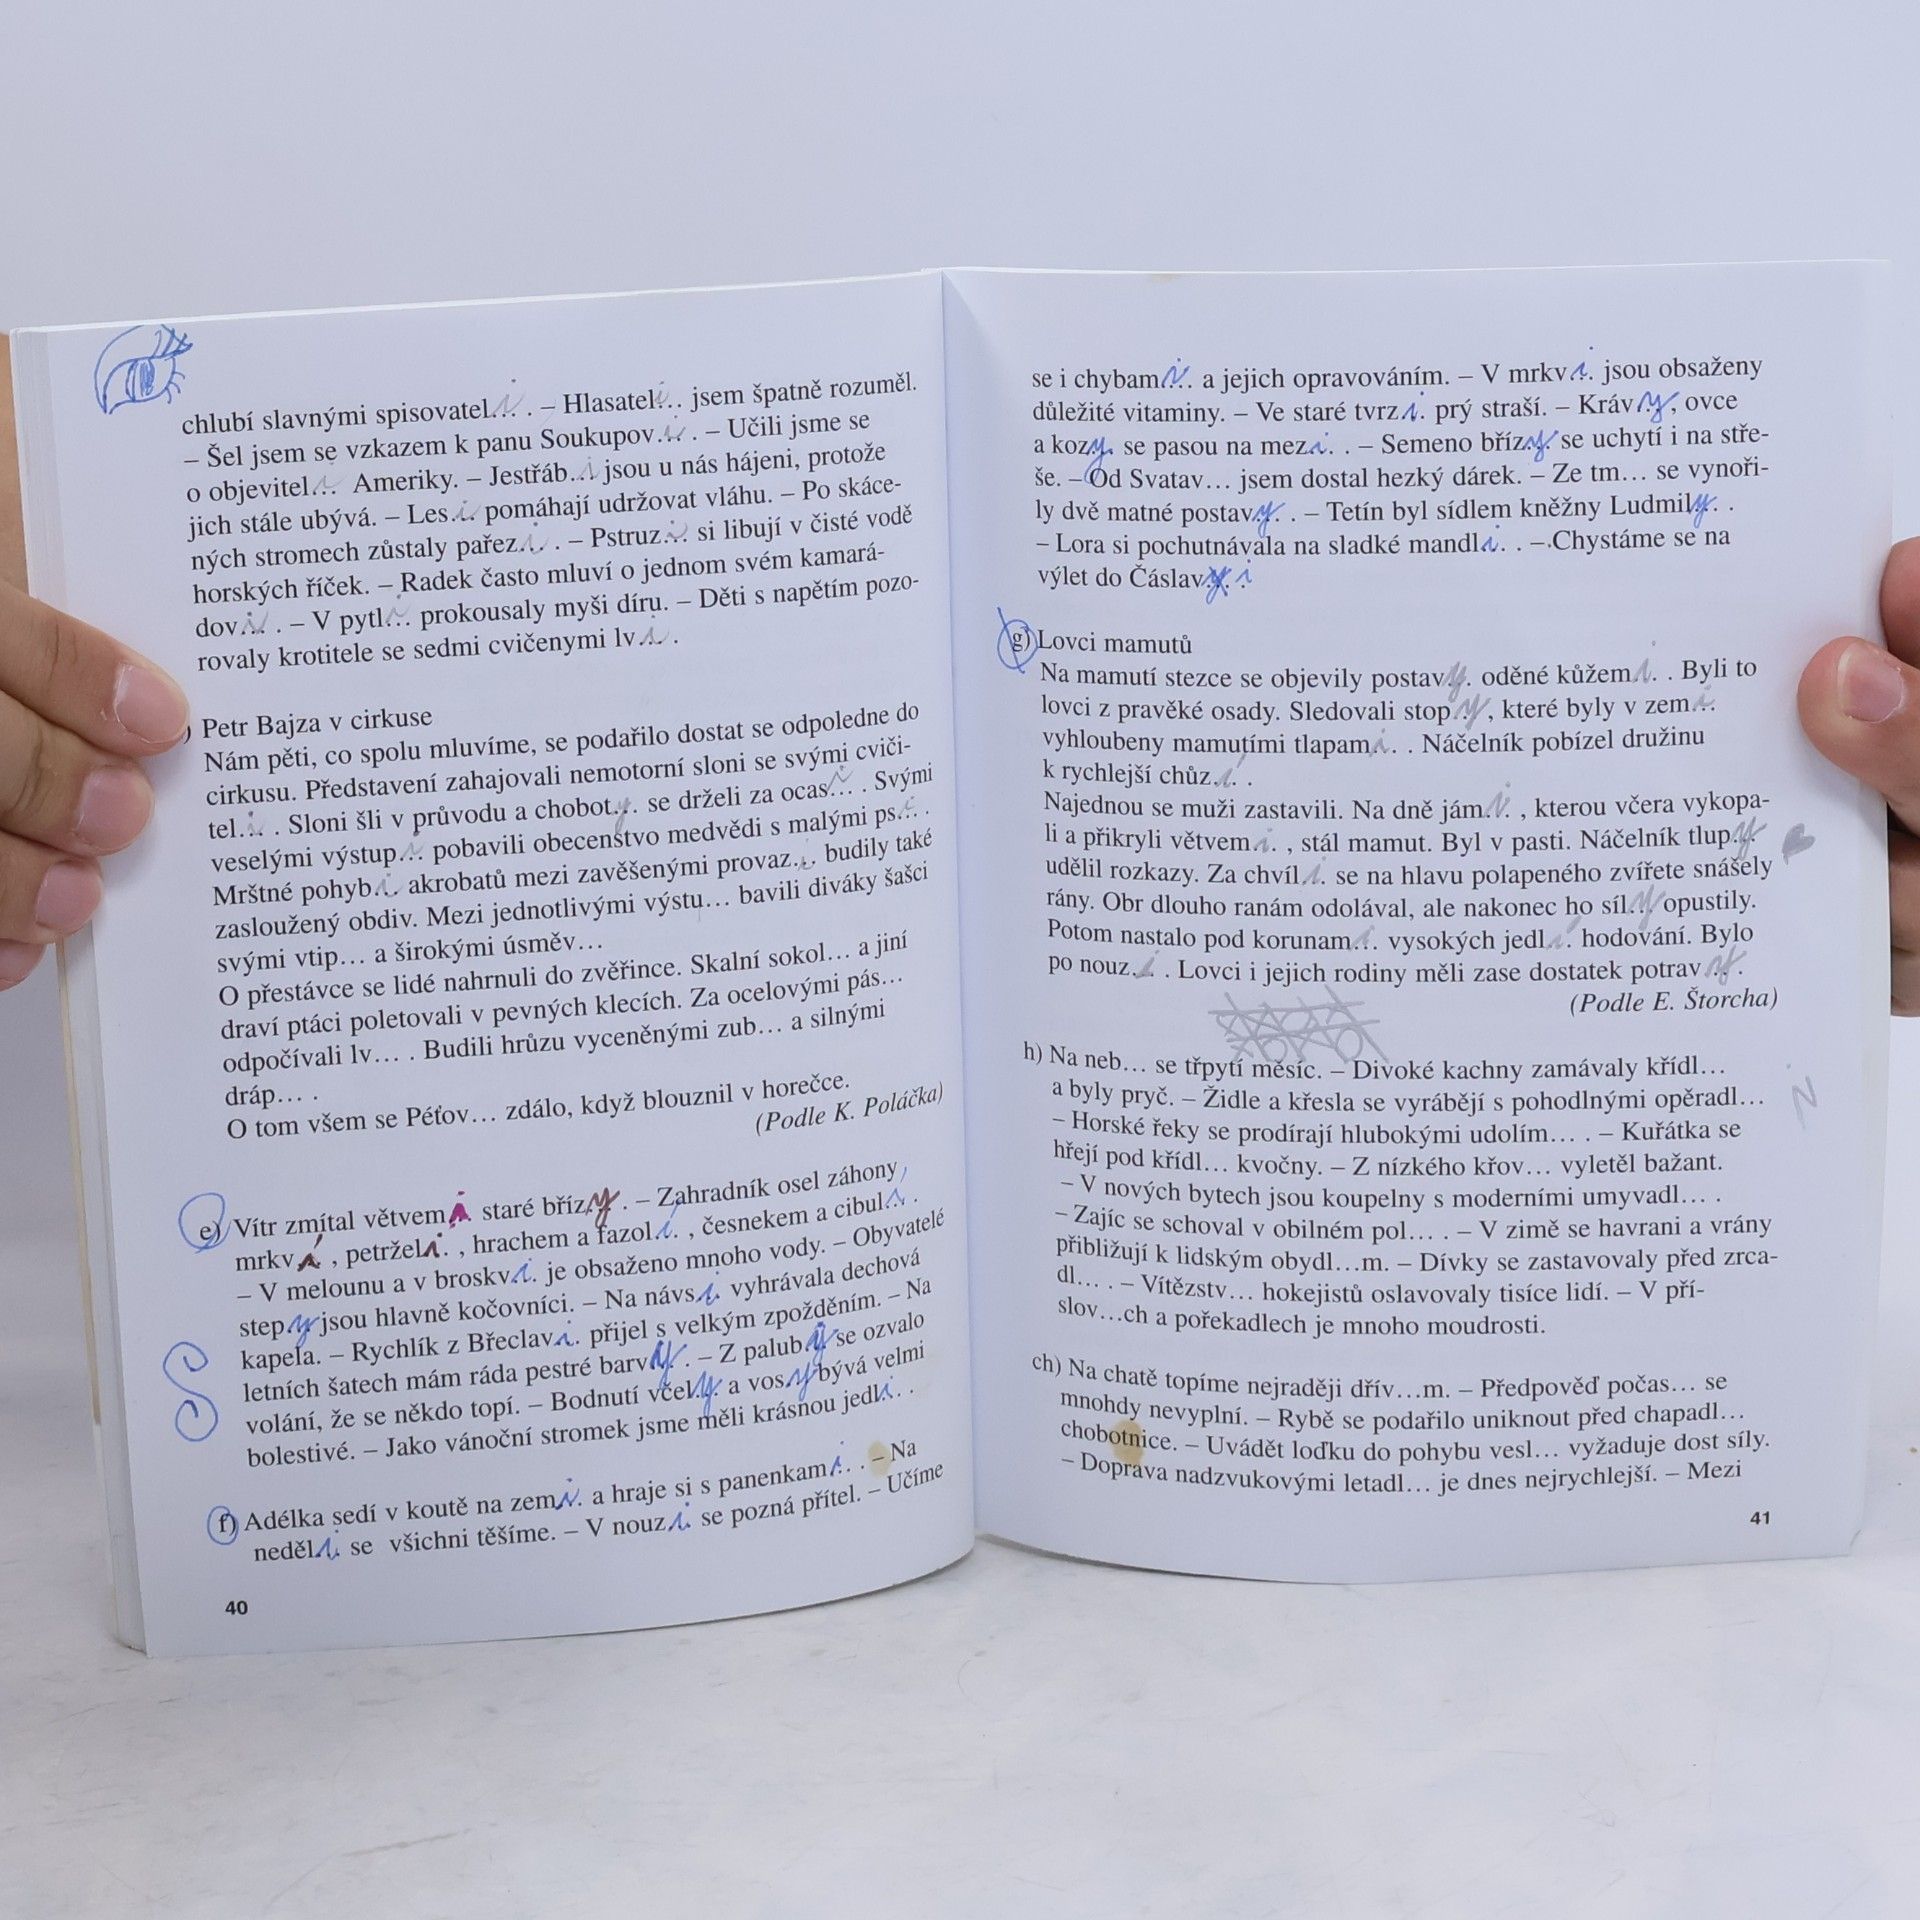 chlubí slavnými spisovatel i... . – Hlasatel i... jsem špatně rozuměl.
– Šel jsem se vzkazem k panu Soukupov i... . – Učili jsme se
o objevitel i... Ameriky. – Jestřáb...i jsou u nás hájeni, protože
jich stále ubývá. – Les i... pomáhají udržovat vláhu. – Po skáce-
ných stromech zůstaly pařez i... . – Pstruz i... si libují v čisté vodě
horských říček. – Radek často mluví o jednom svém kamará-
dov i... . – V pytl i... prokousaly myši díru. – Děti s napětím pozo-
rovaly krotitele se sedmi cvičenymi lv i... .
) Petr Bajza v cirkuse
Nám pěti, co spolu mluvíme, se podařilo dostat se odpoledne do
cirkusu. Představení zahajovali nemotorní sloni se svými cviči-
tel i... . Sloni šli v průvodu a chobot y... se drželi za ocas i... . Svými
veselými výstup i... pobavili obecenstvo medvědi s malými ps i... .
Mrštné pohyb i... akrobatů mezi zavěšenými provaz i... budily také
zasloužený obdiv. Mezi jednotlivými výstu... bavili diváky šašci
svými vtip... a širokými úsměv...
O přestávce se lidé nahrnuli do zvěřince. Skalní sokol... a jiní
draví ptáci poletovali v pevných klecích. Za ocelovými pás...
odpočívali lv... . Budili hrůzu vyceněnými zub... a silnými
dráp... .
O tom všem se Péťov... zdálo, když blouznil v horečce.
(Podle K. Poláčka)
e) Vítr zmítal větvem i staré bříz y . – Zahradník osel záhony,
mrkv í , petržel í. , hrachem a fazol í. , česnekem a cibul i. .
– V melounu a v broskv i. je obsaženo mnoho vody. – Obyvatelé
step y jsou hlavně kočovníci. – Na návs i. vyhrávala dechová
kapela. – Rychlík z Břeclav i. přijel s velkým zpožděním. – Na
letních šatech mám ráda pestré barv y. . – Z palub y se ozvalo
volání, že se někdo topí. – Bodnutí včel y. a vos y bývá velmi
bolestivé. – Jako vánoční stromek jsme měli krásnou jedl i. .
f) Adélka sedí v koutě na zem i. a hraje si s panenkam i. . – Na
neděl i. se všichni těšíme. – V nouz i. se pozná přítel. – Učíme
40
se i chybam i... a jejich opravováním. – V mrkv i. jsou obsaženy
důležité vitaminy. – Ve staré tvrz i. prý straší. – Kráv y, ovce
a koz y. se pasou na mez i. . – Semeno bříz y. se uchytí i na stře-
še. – Od Svatav... jsem dostal hezký dárek. – Ze tm... se vynoři-
ly dvě matné postav y. . – Tetín byl sídlem kněžny Ludmil y. .
– Lora si pochutnávala na sladké mandl i. . – Chystáme se na
výlet do Čáslav i
g) Lovci mamutů
Na mamutí stezce se objevily postav y. oděné kůžem i. . Byli to
lovci z pravěké osady. Sledovali stop y, které byly v zem i...
vyhloubeny mamutími tlapam i. . Náčelník pobízel družinu
k rychlejší chůz i. .
Najednou se muži zastavili. Na dně jám i. , kterou včera vykopa-
li a přikryli větvem i. , stál mamut. Byl v pasti. Náčelník tlup y.
udělil rozkazy. Za chvíl i. se na hlavu polapeného zvířete snášely
rány. Obr dlouho ranám odolával, ale nakonec ho síl y opustily.
Potom nastalo pod korunam i... vysokých jedl í. hodování. Bylo
po nouz i. . Lovci i jejich rodiny měli zase dostatek potrav y. .
(Podle E. Štorcha)
h) Na neb... se třpytí měsíc. – Divoké kachny zamávaly křídl...
a byly pryč. – Židle a křesla se vyrábějí s pohodlnými opěradl...
– Horské řeky se prodírají hlubokými udolím... . – Kuřátka se
hřejí pod křídl... kvočny. – Z nízkého křov... vyletěl bažant.
– V nových bytech jsou koupelny s moderními umyvadl... .
– Zajíc se schoval v obilném pol... . – V zimě se havrani a vrány
přibližují k lidským obydl...m. – Dívky se zastavovaly před zrca-
dl... . – Vítězstv... hokejistů oslavovaly tisíce lidí. – V pří-
slov...ch a pořekadlech je mnoho moudrosti.
ch) Na chatě topíme nejraději dřív...m. – Předpověď počas... se
mnohdy nevyplní. – Rybě se podařilo uniknout před chapadl...
chobotnice. – Uvádět loďku do pohybu vesl... vyžaduje dost síly.
– Doprava nadzvukovými letadl... je dnes nejrychlejší. – Mezi
41